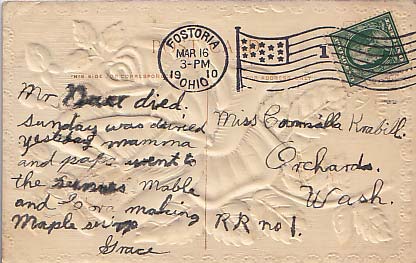 FOSTORIA
MAR 16
3-PM
1910
OHIO
1
THIS SIDE FOR CORRESPONDENCE
ADDRESS ONLY
Mr died.
Sunday was buried
yesterday mamma
and papa went to
the Mable
and I are making
Maple sirup
Grace
Miss Cormilla Krabill
Orchards.
Wash.
RR no 1.